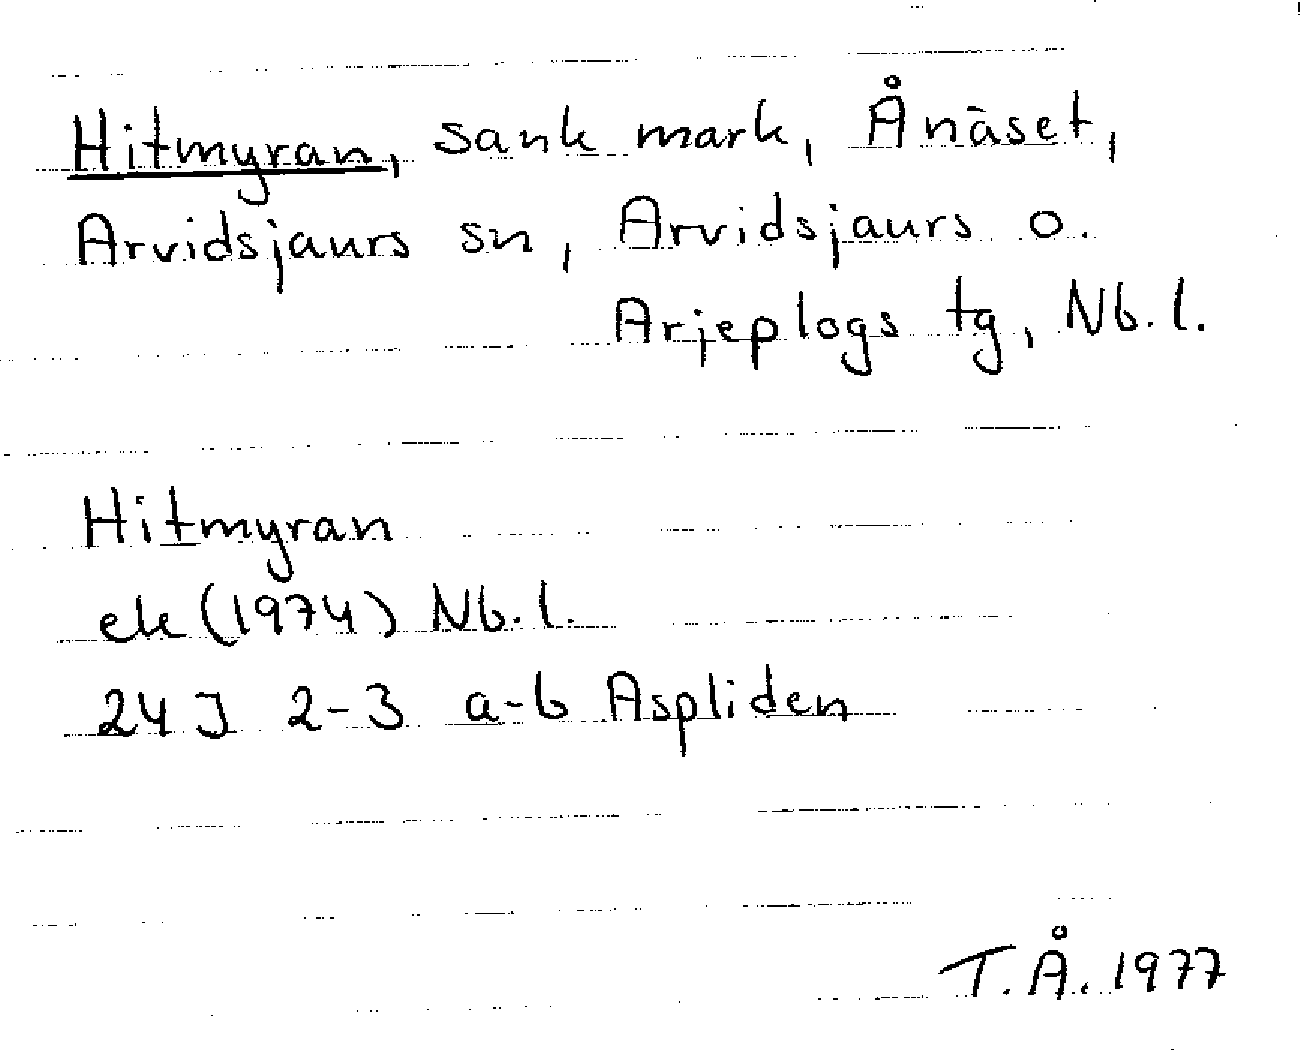 Hitmyran, sank mark, Ånäset,
Arvidsjaurs sn, Arvidsjaurs o.
Arjeplogs tg, Nb. l.
Hitmyran
ek (1974) Nb. l.
24J 2-3 a-b Aspliden
T.Å. 1977